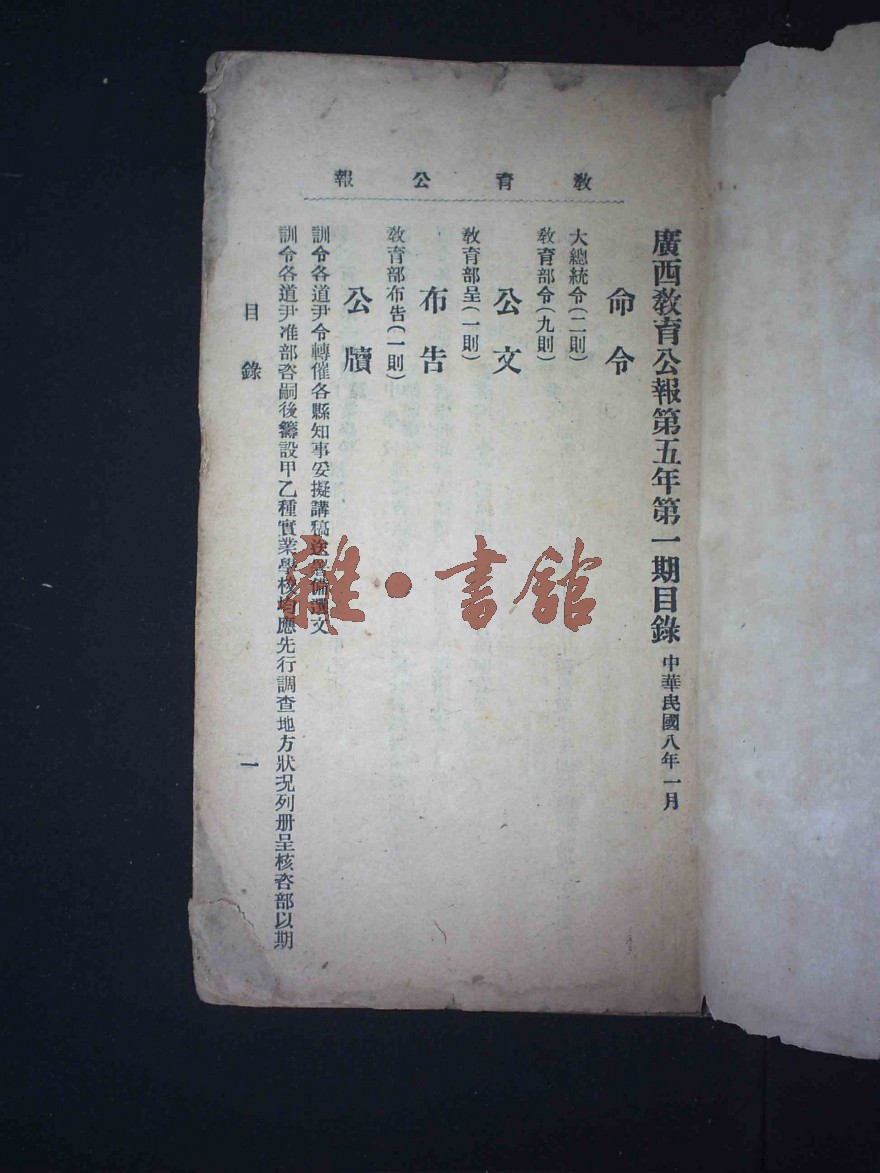 教育公報
廣西教育公報第五年第一期目錄 中華民國八年一月
命令
大總統令(二則)
教育部令(九則)
公文
教育部呈(一則)
布告
教育部布告(一則)
公牘
訓令各道尹令轉催各縣知事妥擬講稿送署備選文
訓令各道尹准部咨嗣後籌設甲乙種實業學校均應先行調查地方狀況列册呈核咨部以期
目錄
一
雜·書館